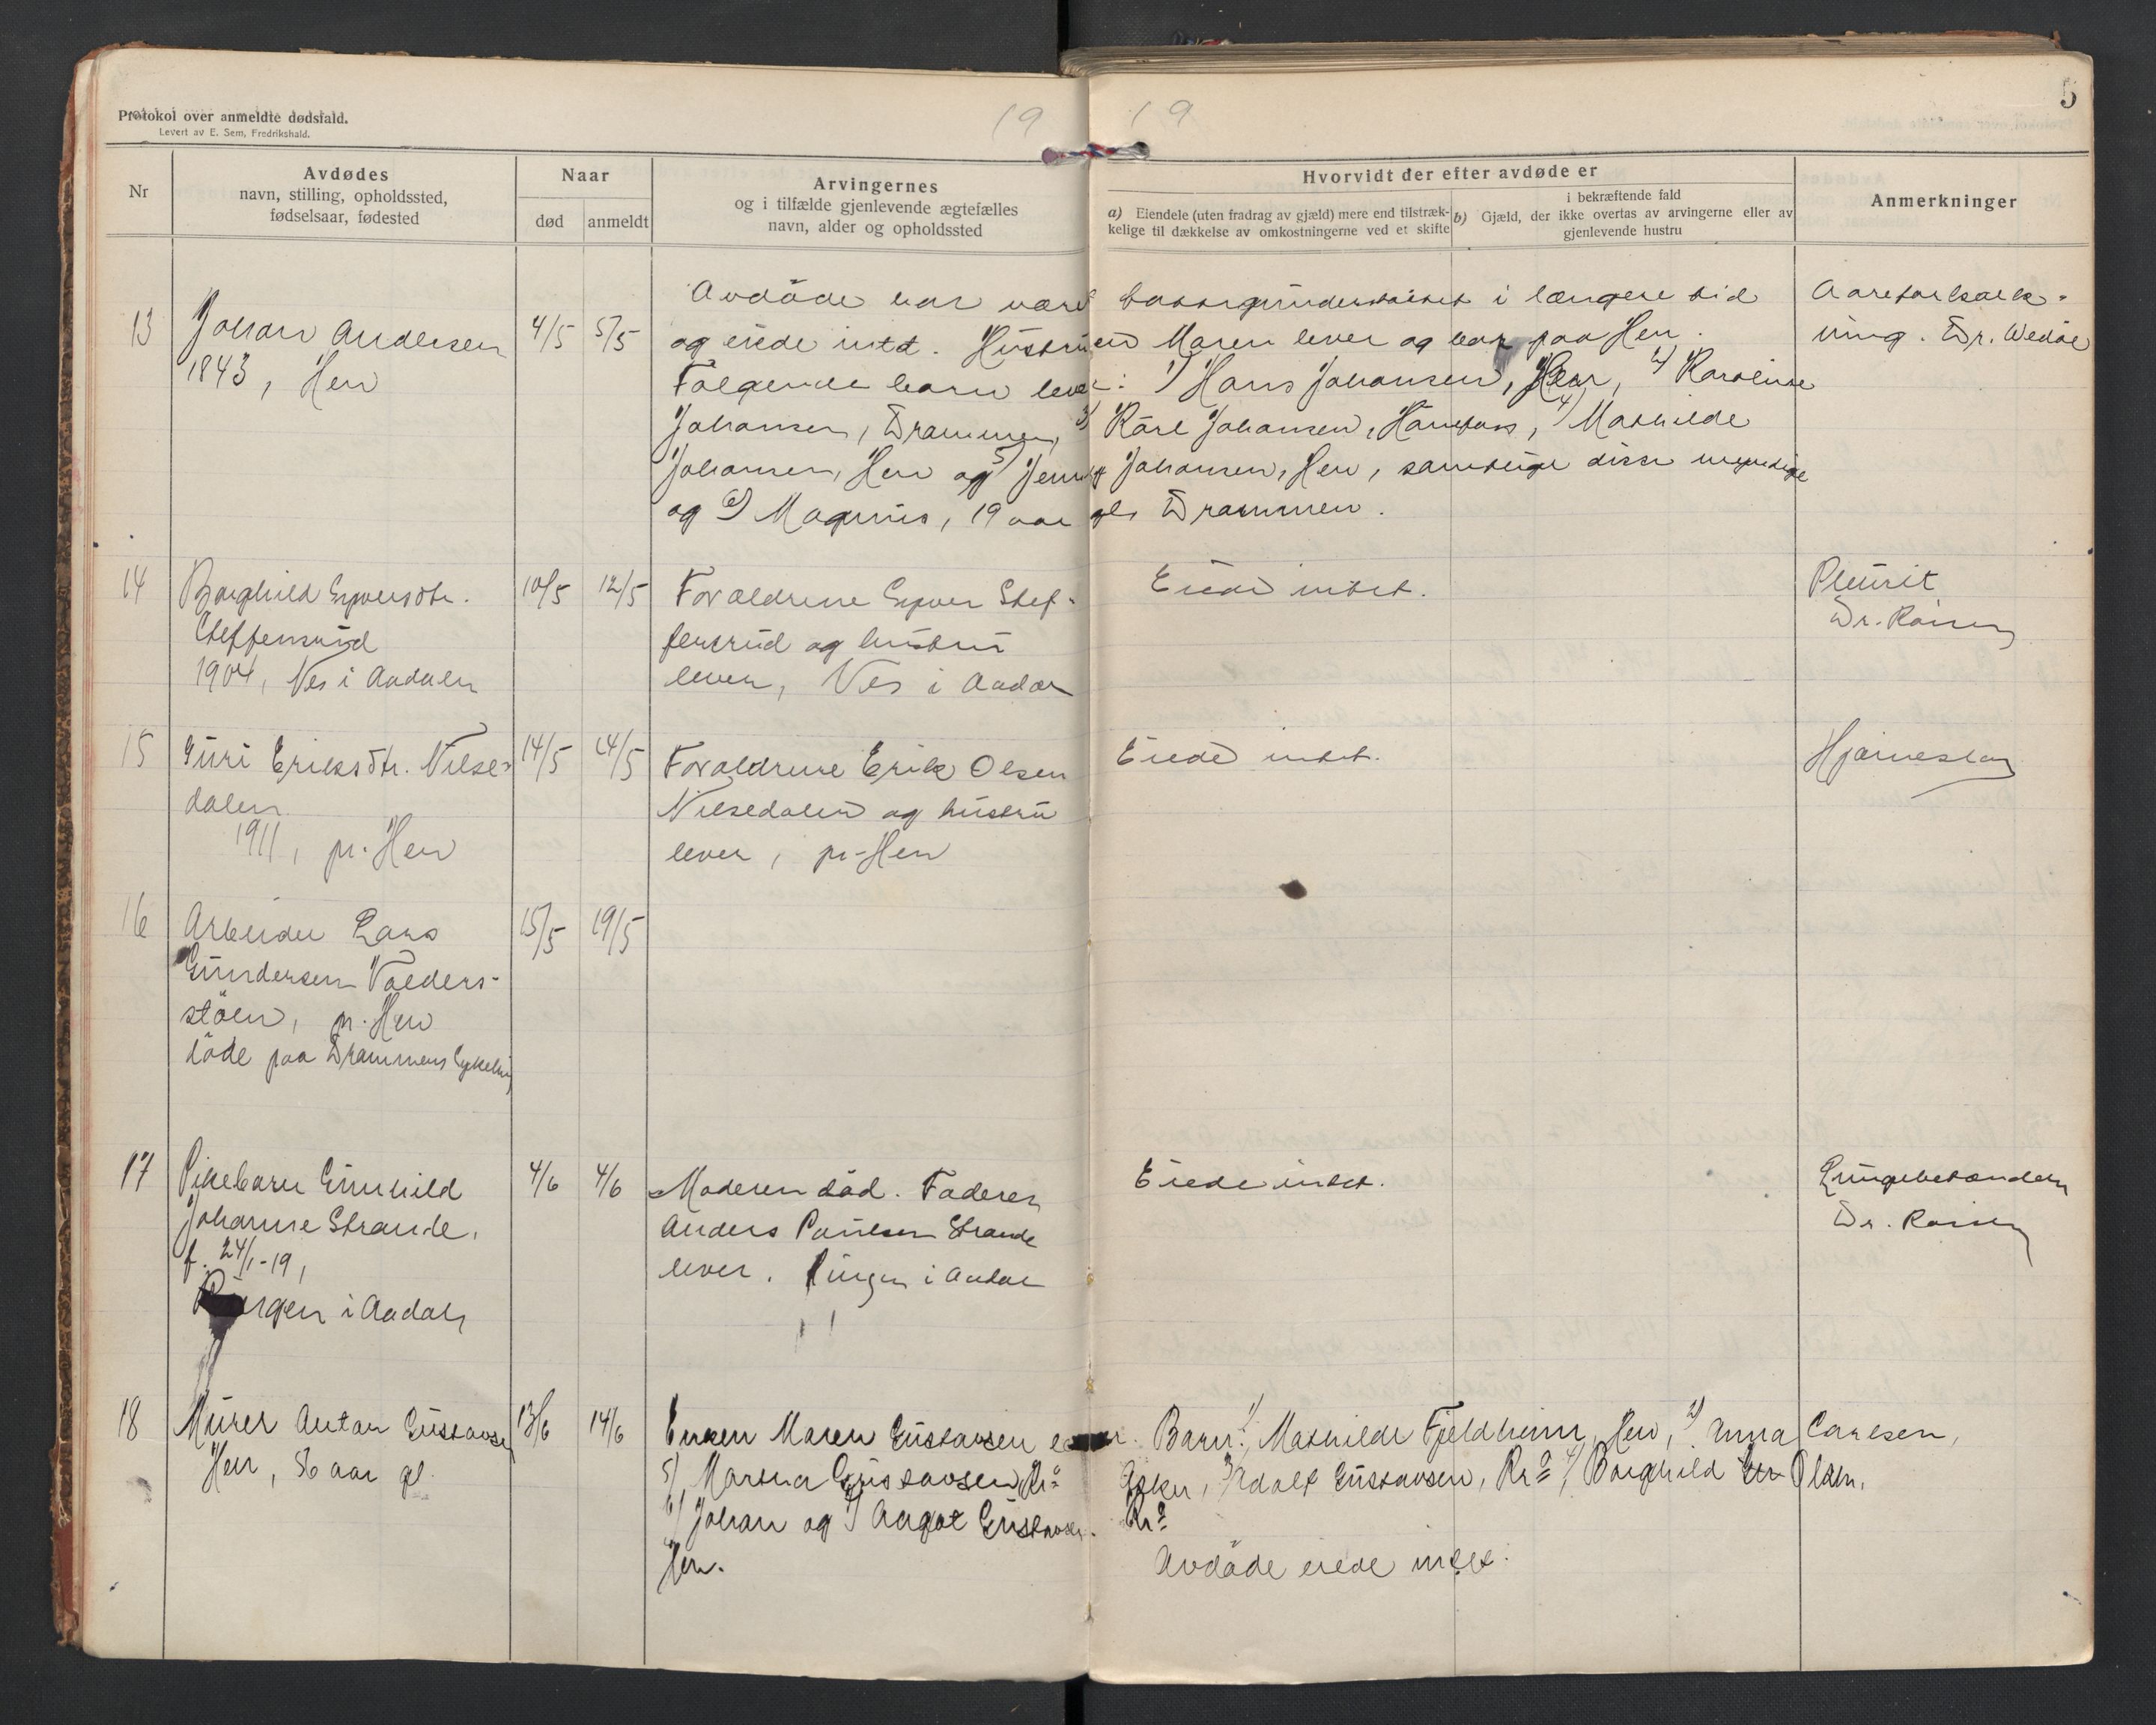 Protokol over anmeldte dødsfald.
Levert av E. Sem, Fredrikshald.
19
19
5
Nr
Avdødes
navn, stilling, opholdssted,
fødselsaar, fødested
Naar
død
anmeldt
Arvingernes
og i tilfælde gjenlevende ægtefælles
navn, alder og opholdssted
Hvorvidt der efter avdøde er
a) Eiendele (uten fradrag av gjæld) mere end tilstræk-
kelige til dækkelse av omkostningerne ved et skifte
i bekræftende fald
b) Gjæld, der ikke overtas av arvingerne eller av
gjenlevende hustru
Anmerkninger
13
Johan Andersen
1843, Hen
4/5
5/5
Avdøde har været fattigunderstøttet i længere tid
og eiede intet. Hustruen Maren lever og bor paa Hen.
Følgende barn lever: 1) Hans Johansen, Hen, 2) Karoline
Johansen, Drammen, 3) Karl Johansen, Hønefoss, 4) Mathilde
Johansen, Hen og 5) Johansen, Hen, samtlige disse myndige
og 6) Magnus, 19 aar gl. Drammen.
Aareforkalk-
ning. Dr.
14
Borghild
Steffensrud
1904, Nes i Aadalen
10/5
12/5
Forældrene Stef-
fensrud og hustru
lever, Nes i Aadal
Eiede intet.
Pleurit
Dr.
15
Guri Eriksdtr. Nilse-
dalen
1911, pr. Hen
14/5
24/5
Forældrene Erik Olsen
Nilsedalen og hustru
lever, pr. Hen
Eiede intet.
Hjerneslag
16
Arbeider Lars
Gundersen
støen, pr. Hen
døde paa Drammens Sykehus
15/5
19/5
17
Pikebarn Gunhild
Johanne Strande,
f. 24/1-19,
Ringen i Aadalen
4/6
4/6
Moderen død. Faderen
Anders Paulsen Strande
lever. Ringen i Aadal
Eiede intet.
Lungebetændelse
Dr.
18
Murer Anton Gustavsen
Hen, 56 aar gl.
13/6
14/6
Enken Maren Gustavsen lever. Barn: 1) Mathilde Fjeldheim, Hen, 2) Anna Carlsen,
Asker, 3) Adolf Gustavsen, Kr.a 4) Borghild Olsen,
5) Martha Gustavsen, Kr.a
6) Johan og 7) Aagot Gustavsen. Kr.a
Hen.
Avdøde eiede intet.